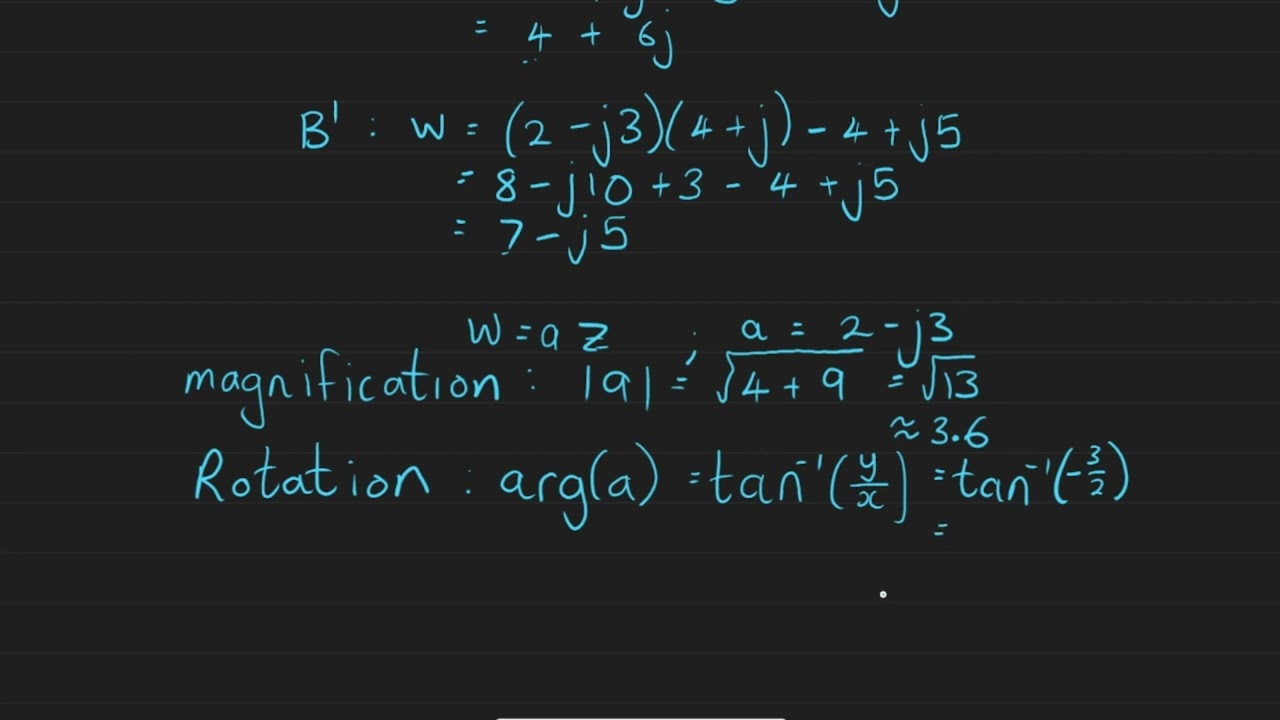 = 4 + 6j
B' : w = (2 - j3)(4 + j) - 4 + j5
= 8 - j10 + 3 - 4 + j5
= 7 - j5
W = a z ; a = 2 - j3
magnification : |a| = √(4 + 9) = √13
≈ 3.6
Rotation : arg(a) = tan⁻¹(y/x) = tan⁻¹(-3/2)
=